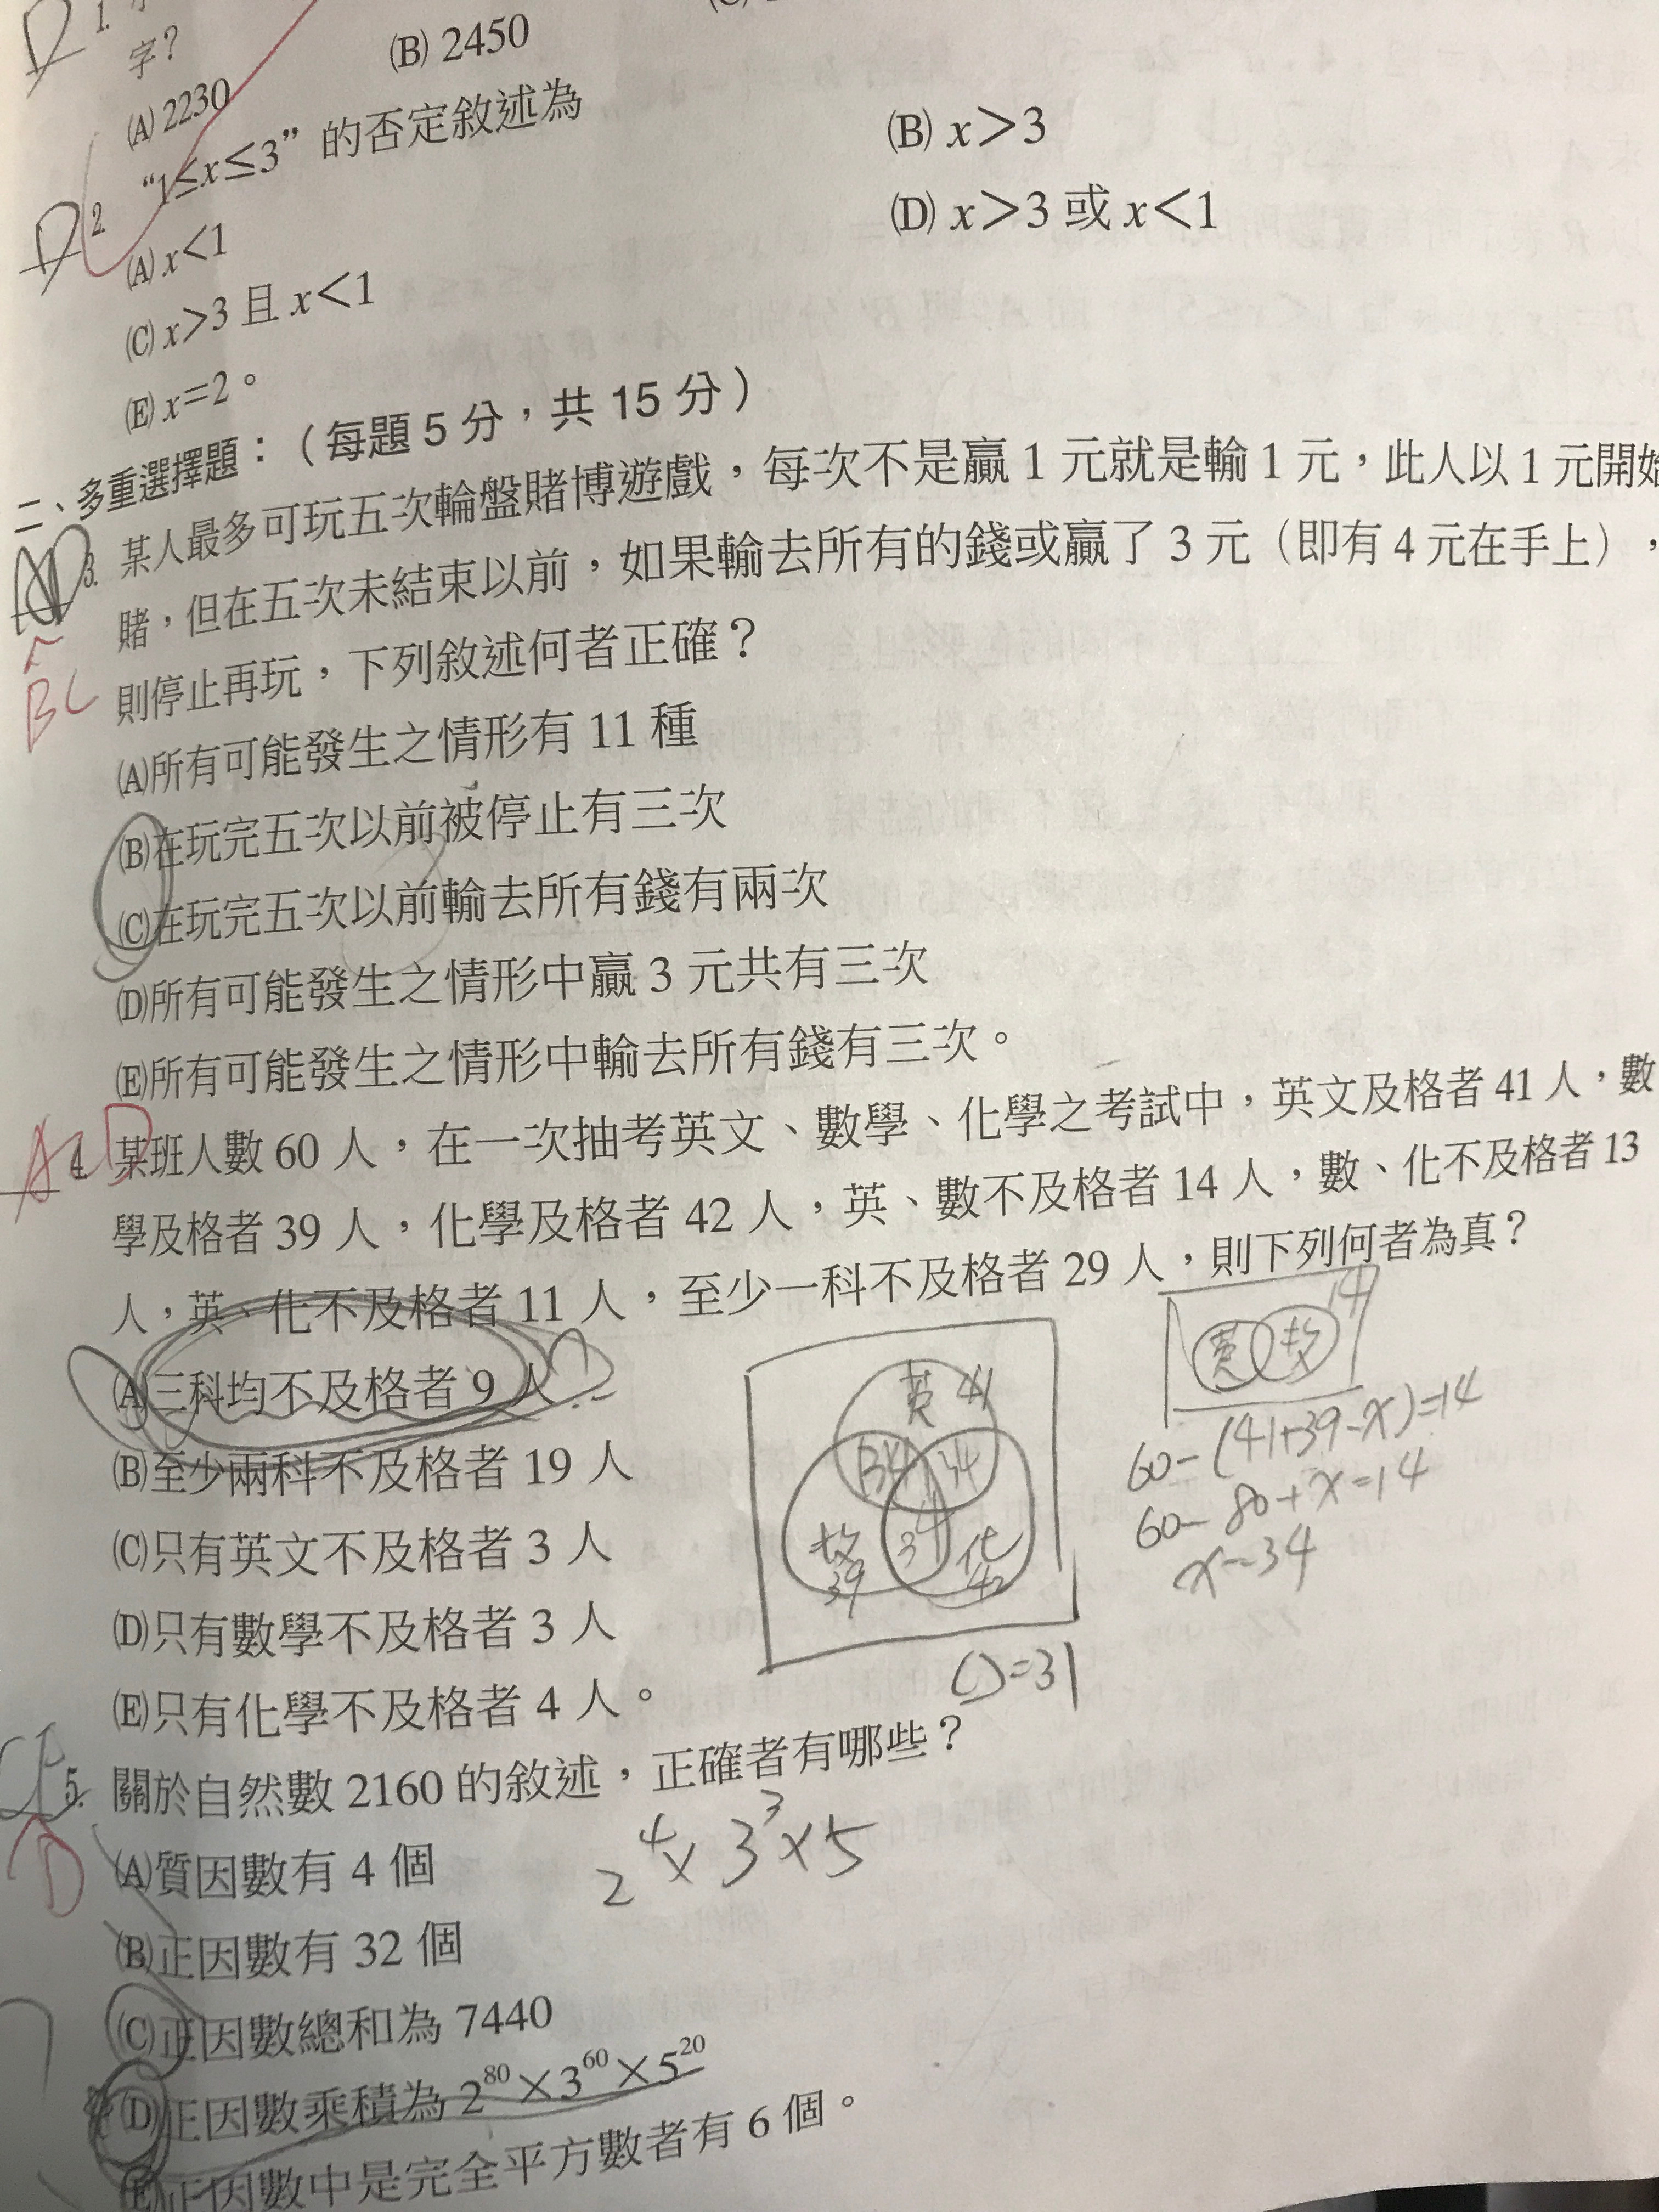 D 1.
字？
(A) 2230
(B) 2450
D 2. “1≤x≤3”的否定敘述為
(A) x<1
(B) x>3
(C) x>3 且 x<1
(D) x>3 或 x<1
(E) x=2。
二、多重選擇題：（每題 5 分，共 15 分）
3. 某人最多可玩五次輪盤賭博遊戲，每次不是贏 1 元就是輸 1 元，此人以 1 元開始
賭，但在五次未結束以前，如果輸去所有的錢或贏了 3 元（即有 4 元在手上），
BC 則停止再玩，下列敘述何者正確？
(A)所有可能發生之情形有 11 種
(B)在玩完五次以前被停止有三次
(C)在玩完五次以前輸去所有錢有兩次
(D)所有可能發生之情形中贏 3 元共有三次
(E)所有可能發生之情形中輸去所有錢有三次。
4. 某班人數 60 人，在一次抽考英文、數學、化學之考試中，英文及格者 41 人，數
學及格者 39 人，化學及格者 42 人，英、數不及格者 14 人，數、化不及格者 13
人，英、化不及格者 11 人，至少一科不及格者 29 人，則下列何者為真？
(A)三科均不及格者 9 人
(B)至少兩科不及格者 19 人
(C)只有英文不及格者 3 人
(D)只有數學不及格者 3 人
(E)只有化學不及格者 4 人。
英 41
34
39
化
42
=31
14
英
60-(41+39-x)=14
60-80+x=14
x=34
5. 關於自然數 2160 的敘述，正確者有哪些？
D
2⁴×3³×5
(A)質因數有 4 個
(B)正因數有 32 個
(C)正因數總和為 7440
(D)正因數乘積為 2⁸⁰×3⁶⁰×5²⁰
(E)正因數中是完全平方數者有 6 個。